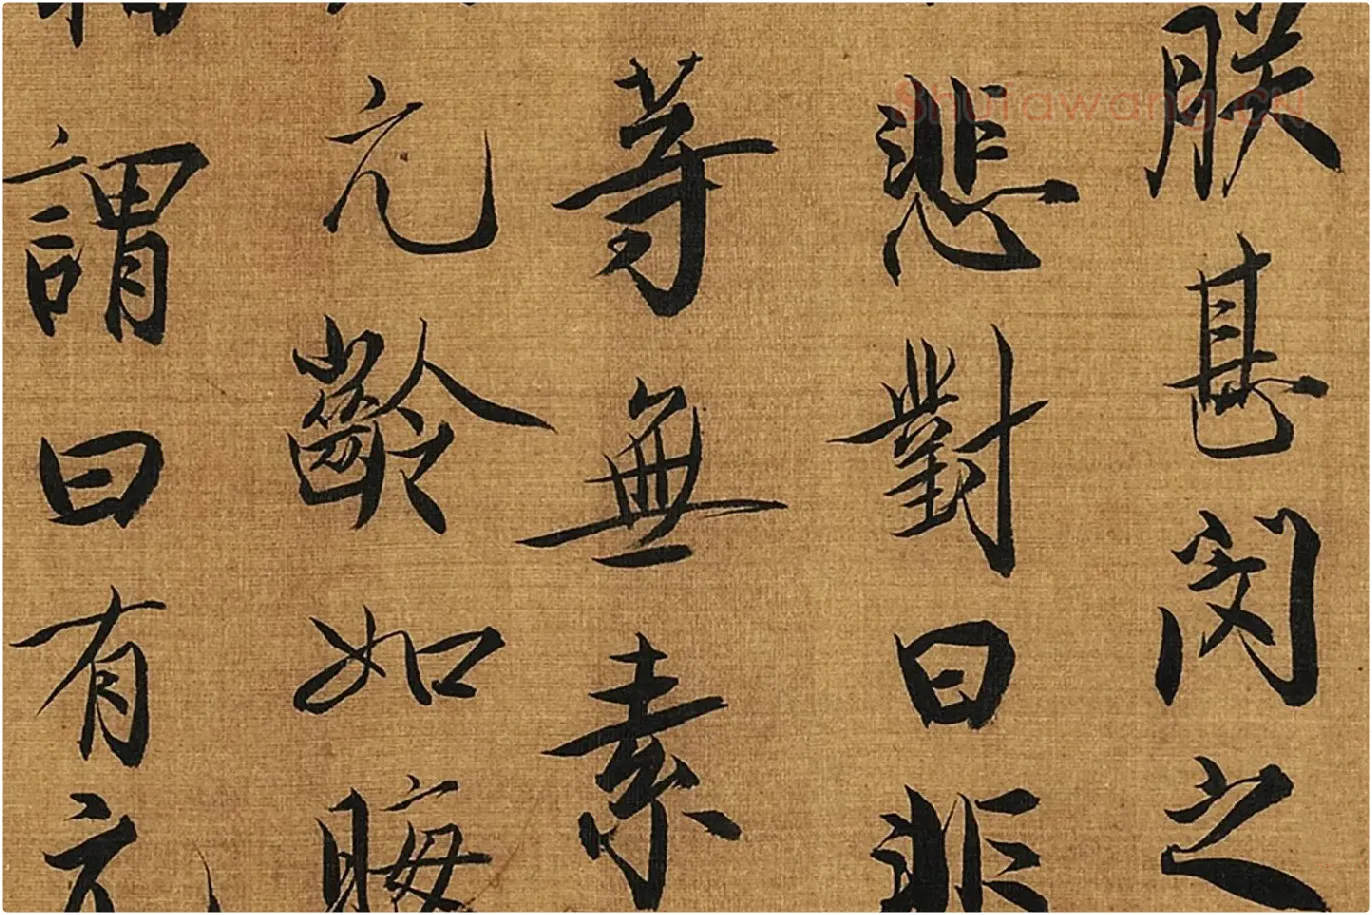 朕甚閔之
悲對曰非
䓁無素
元齡如晦
謂曰有元
Shufawang.CN